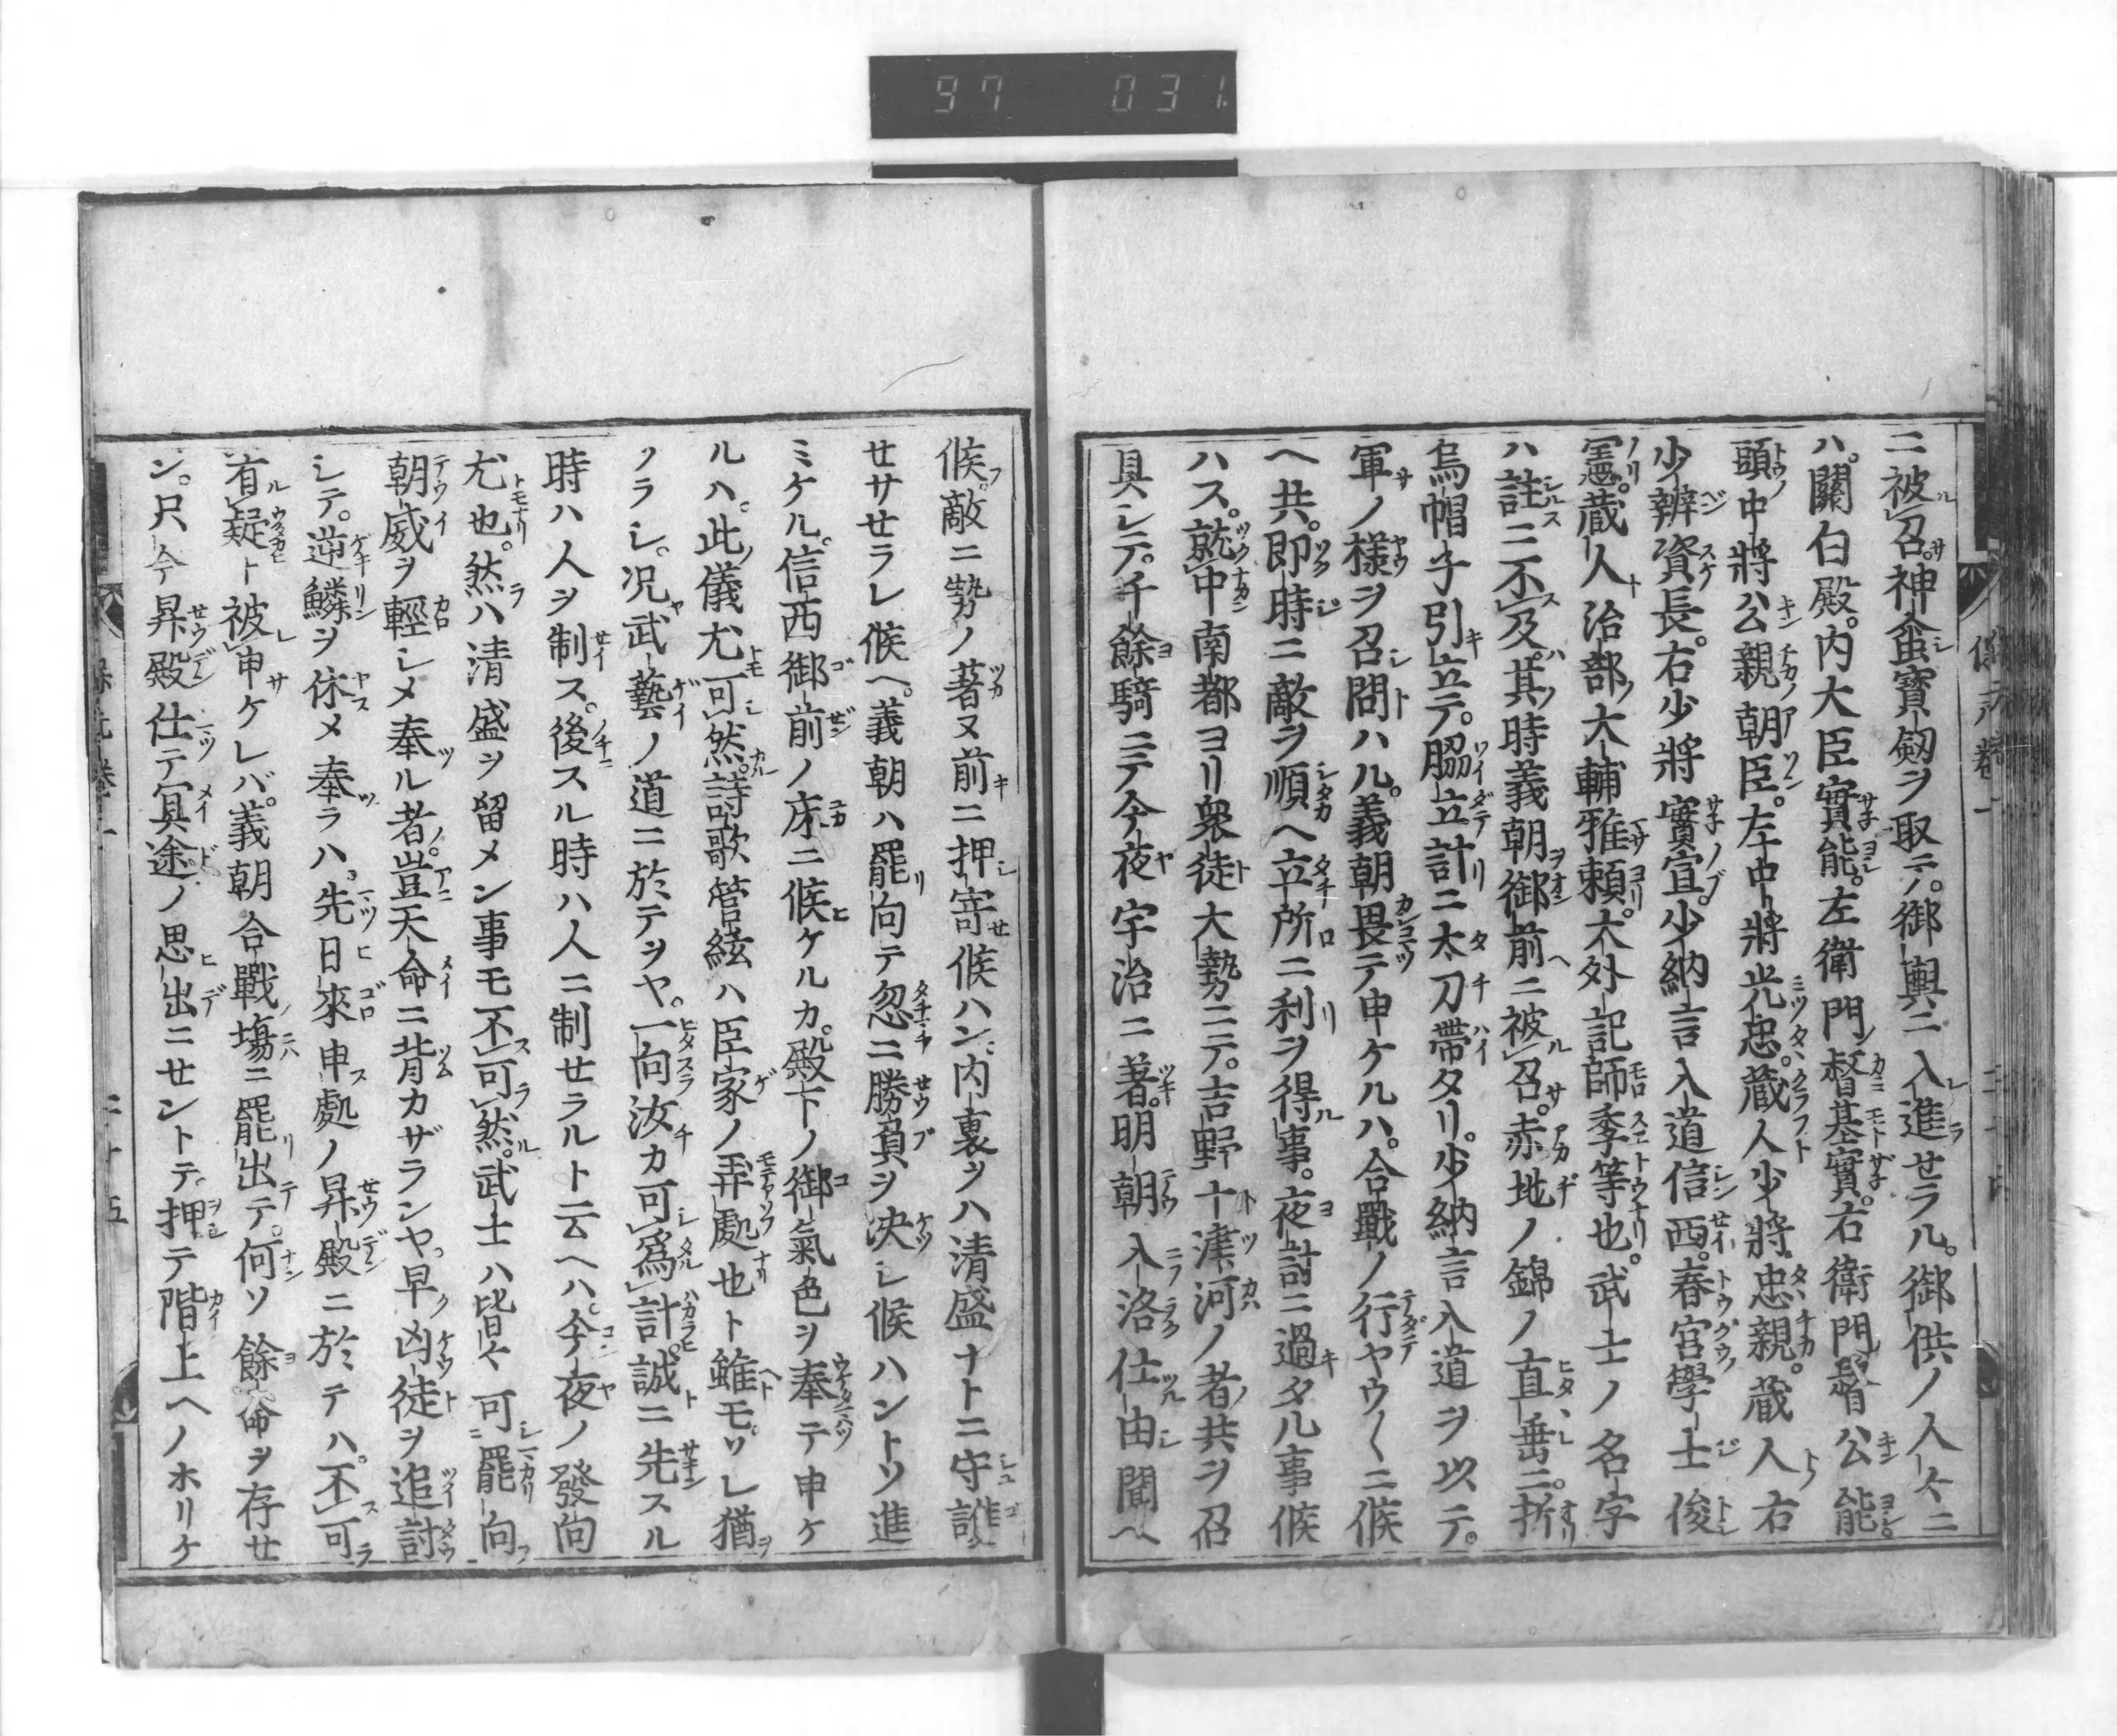 97 031.
ニ被召神璽寶劔ヲ取テ。御輿ニ入進セラル。御供ノ人々ニ
ハ。關白殿。内大臣實能。左衛門督基實。右衛門督公能
頭中將公親朝臣。左中將光忠。蔵人少將忠親。蔵人右
少辨資長。右少將實宣。少納言入道信西。春宮學士俊
憲。蔵人治部大輔雅頼。大外記師季等也。武士ノ名字
ハ註ニ不及。其時義朝御前ニ被召。赤地ノ錦ノ直垂ニ。折
烏帽子引立テ。脇立計ニ太刀帯タリ。少納言入道ヲ以テ。
軍ノ様ヲ召問ハル。義朝畏テ申ケルハ。合戰ノ行ヤウ〱ニ候
ヘ共。即時ニ敵ヲ順ヘ立所ニ利ヲ得事。夜討ニ過タル事候
ハス。就中南都ヨリ衆徒大勢ニテ。吉野十津河ノ者共ヲ召
具シテ。千餘騎ニテ今夜宇治ニ著。明朝入洛仕由聞ヘ
候敵ニ勢ノ著又前ニ押寄候ハン。内裏ヲハ清盛ナトニ守護
せサせラレ候ヘ。義朝ハ罷向テ忽ニ勝負ヲ决シ候ハントソ進
ミケル。信西御前ノ床ニ候ケルカ。殿下ノ御氣色ヲ奉テ申ケ
ルハ。此儀尤可然。詩歌管絃ハ臣家ノ弄處也ト雖モ。ソレ猶
ノラシ。况武藝ノ道ニ於テヲヤ。一向汝カ可爲計。誠ニ先スル
時ハ人ヲ制ス。後スル時ハ人ニ制せラルト云ヘハ。今夜ノ發向
尤也。然ハ清盛ヲ留メン事モ不可然。武士ハ皆々可罷向
朝威ヲ輕シメ奉ル者。豈天命ニ背カザランヤ。早凶徒ヲ追討
シテ。逆鱗ヲ休メ奉ラハ。先日來申處ノ昇殿ニ於テハ。不可
有疑ト被申ケレバ。義朝合戰塲ニ罷出テ。何ソ餘命ヲ存せ
ン。只今昇殿仕テ冥途ノ思出ニせントテ。押テ階上ヘノホリケ